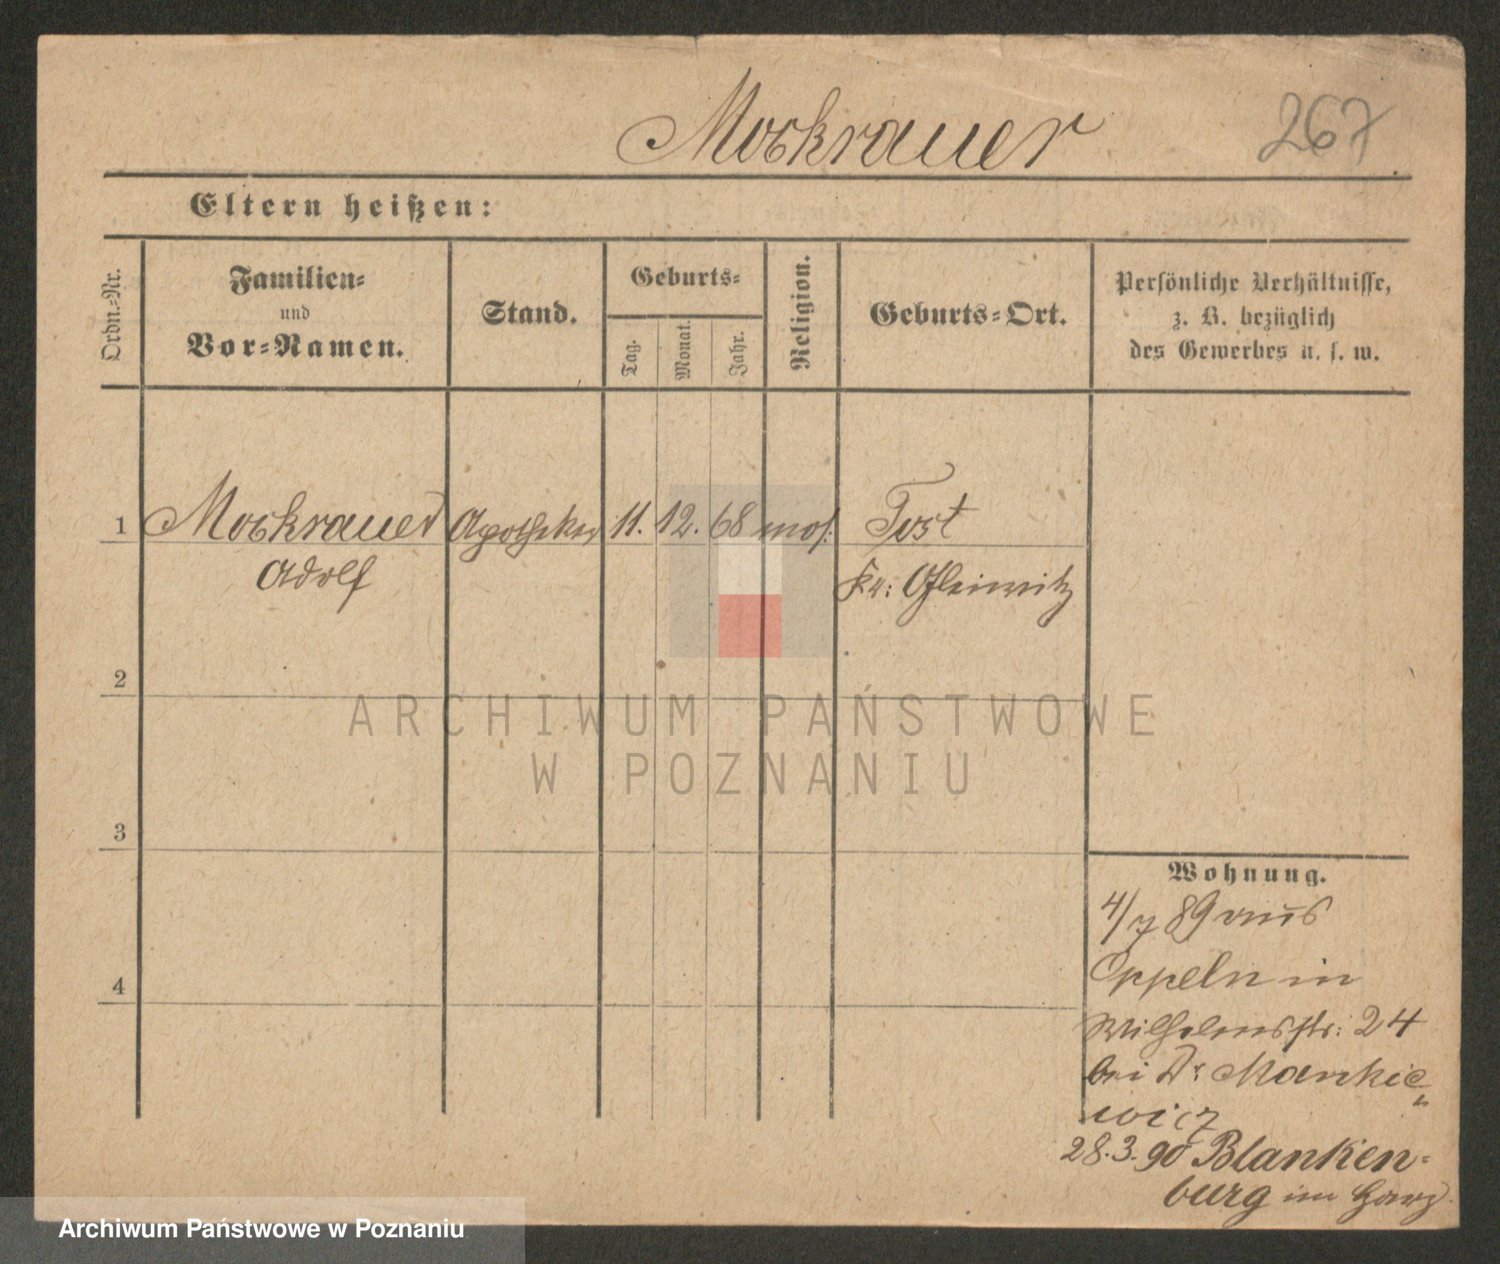 Mockrauer 267
Eltern heißen:
Ordn.-Nr.
Familien-
und
Vor-Namen.
Stand.
Geburts-
Tag.
Monat.
Jahr.
Religion.
Geburts-Ort.
Persönliche Verhältnisse,
z. B. bezüglich
des Gewerbes u. s. w.
1 Mockrauer Apotheker 11. 12. 68 mos. Tost
Adolf Kr: Gleiwitz
2
3
4
Wohnung.
4/7 89 aus
Oppeln in
Wilhelmsstr: 24
bei Dr Mankie
wicz
28.3.90 Blanken-
burg im Harz
ARCHIWUM PAŃSTWOWE
W POZNANIU
Archiwum Państwowe w Poznaniu